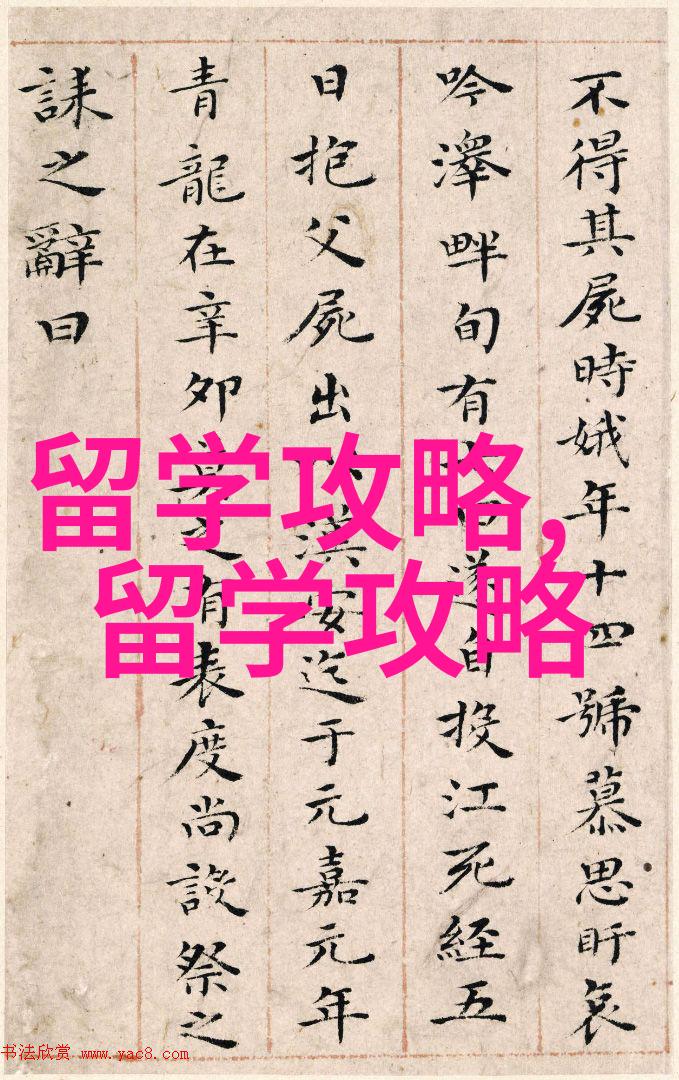 不得其屍時娥年十四號慕思盱哀
吟澤畔旬有七日遂自投江死經五
日抱父屍出以漢安迄于元嘉元年
青龍在辛卯莫之有表度尚設祭之
誄之辭曰
留学攻略,
留学攻略
书法欣赏 www.yac8.com